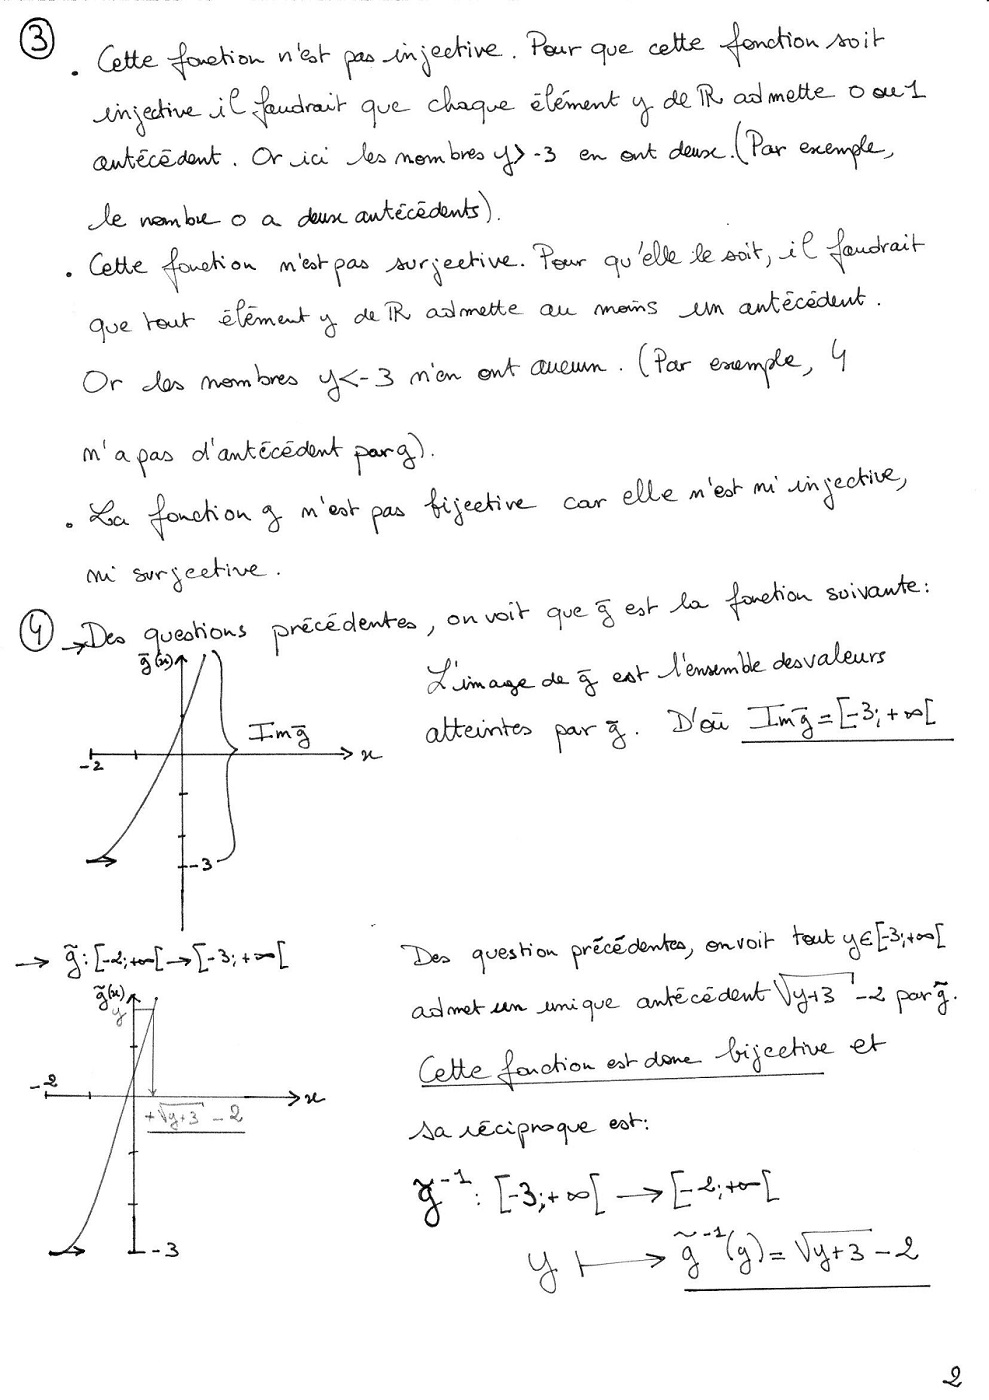 ③
. Cette fonction n'est pas injective. Pour que cette fonction soit
injective il faudrait que chaque élément y de ℝ admette 0 ou 1
antécédent. Or ici les nombres y> -3 en ont deux. (Par exemple,
le nombre 0 a deux antécédents).
. Cette fonction n'est pas surjective. Pour qu'elle le soit, il faudrait
que tout élément y de ℝ admette au moins un antécédent.
Or les nombres y<-3 n'en ont aucun. (Par exemple, 4
n'a pas d'antécédent par g).
. La fonction g n'est pas bijective car elle n'est ni injective,
ni surjective.
④ → Des questions précédentes, on voit que g̅ est la fonction suivante:
g̅(x)
Im g̅
x
-2
-3
L'image de g̅ est l'ensemble des valeurs
atteintes par g̅. D'où Im g̅ = [-3;+∞[
→ g̃ : [-2;+∞[ → [-3;+∞[
g̃(x)
y
-2
x
+√y+3 - 2
-3
Des question précédentes, on voit tout y∈[-3;+∞[
admet un unique antécédent √y+3 -2 par g̃.
Cette fonction est donc bijective et
sa réciproque est:
g̃⁻¹ : [-3;+∞[ → [-2;+∞[
y ⟼ g̃⁻¹(y) = √y+3 - 2
2